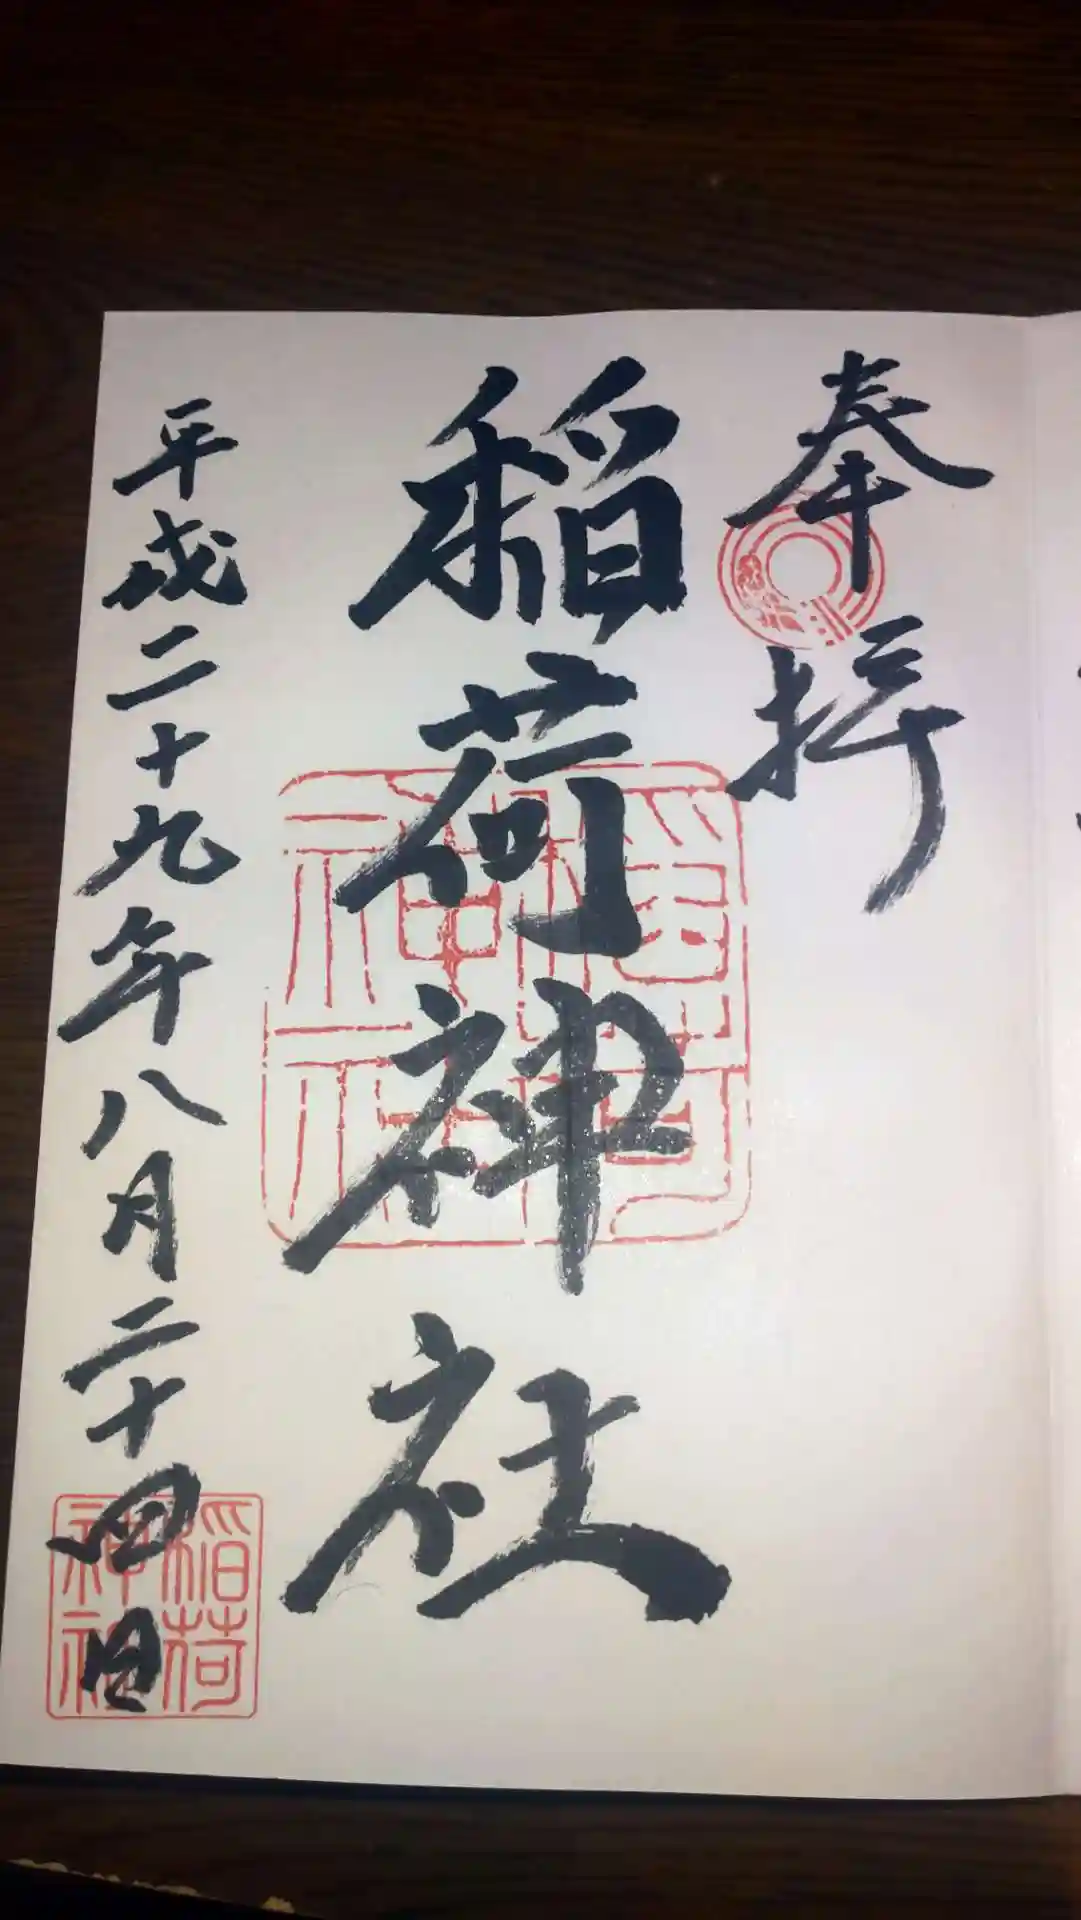 奉拝
稲荷神社
平成二十九年八月二十四日
稲荷
神社
稲荷
神社